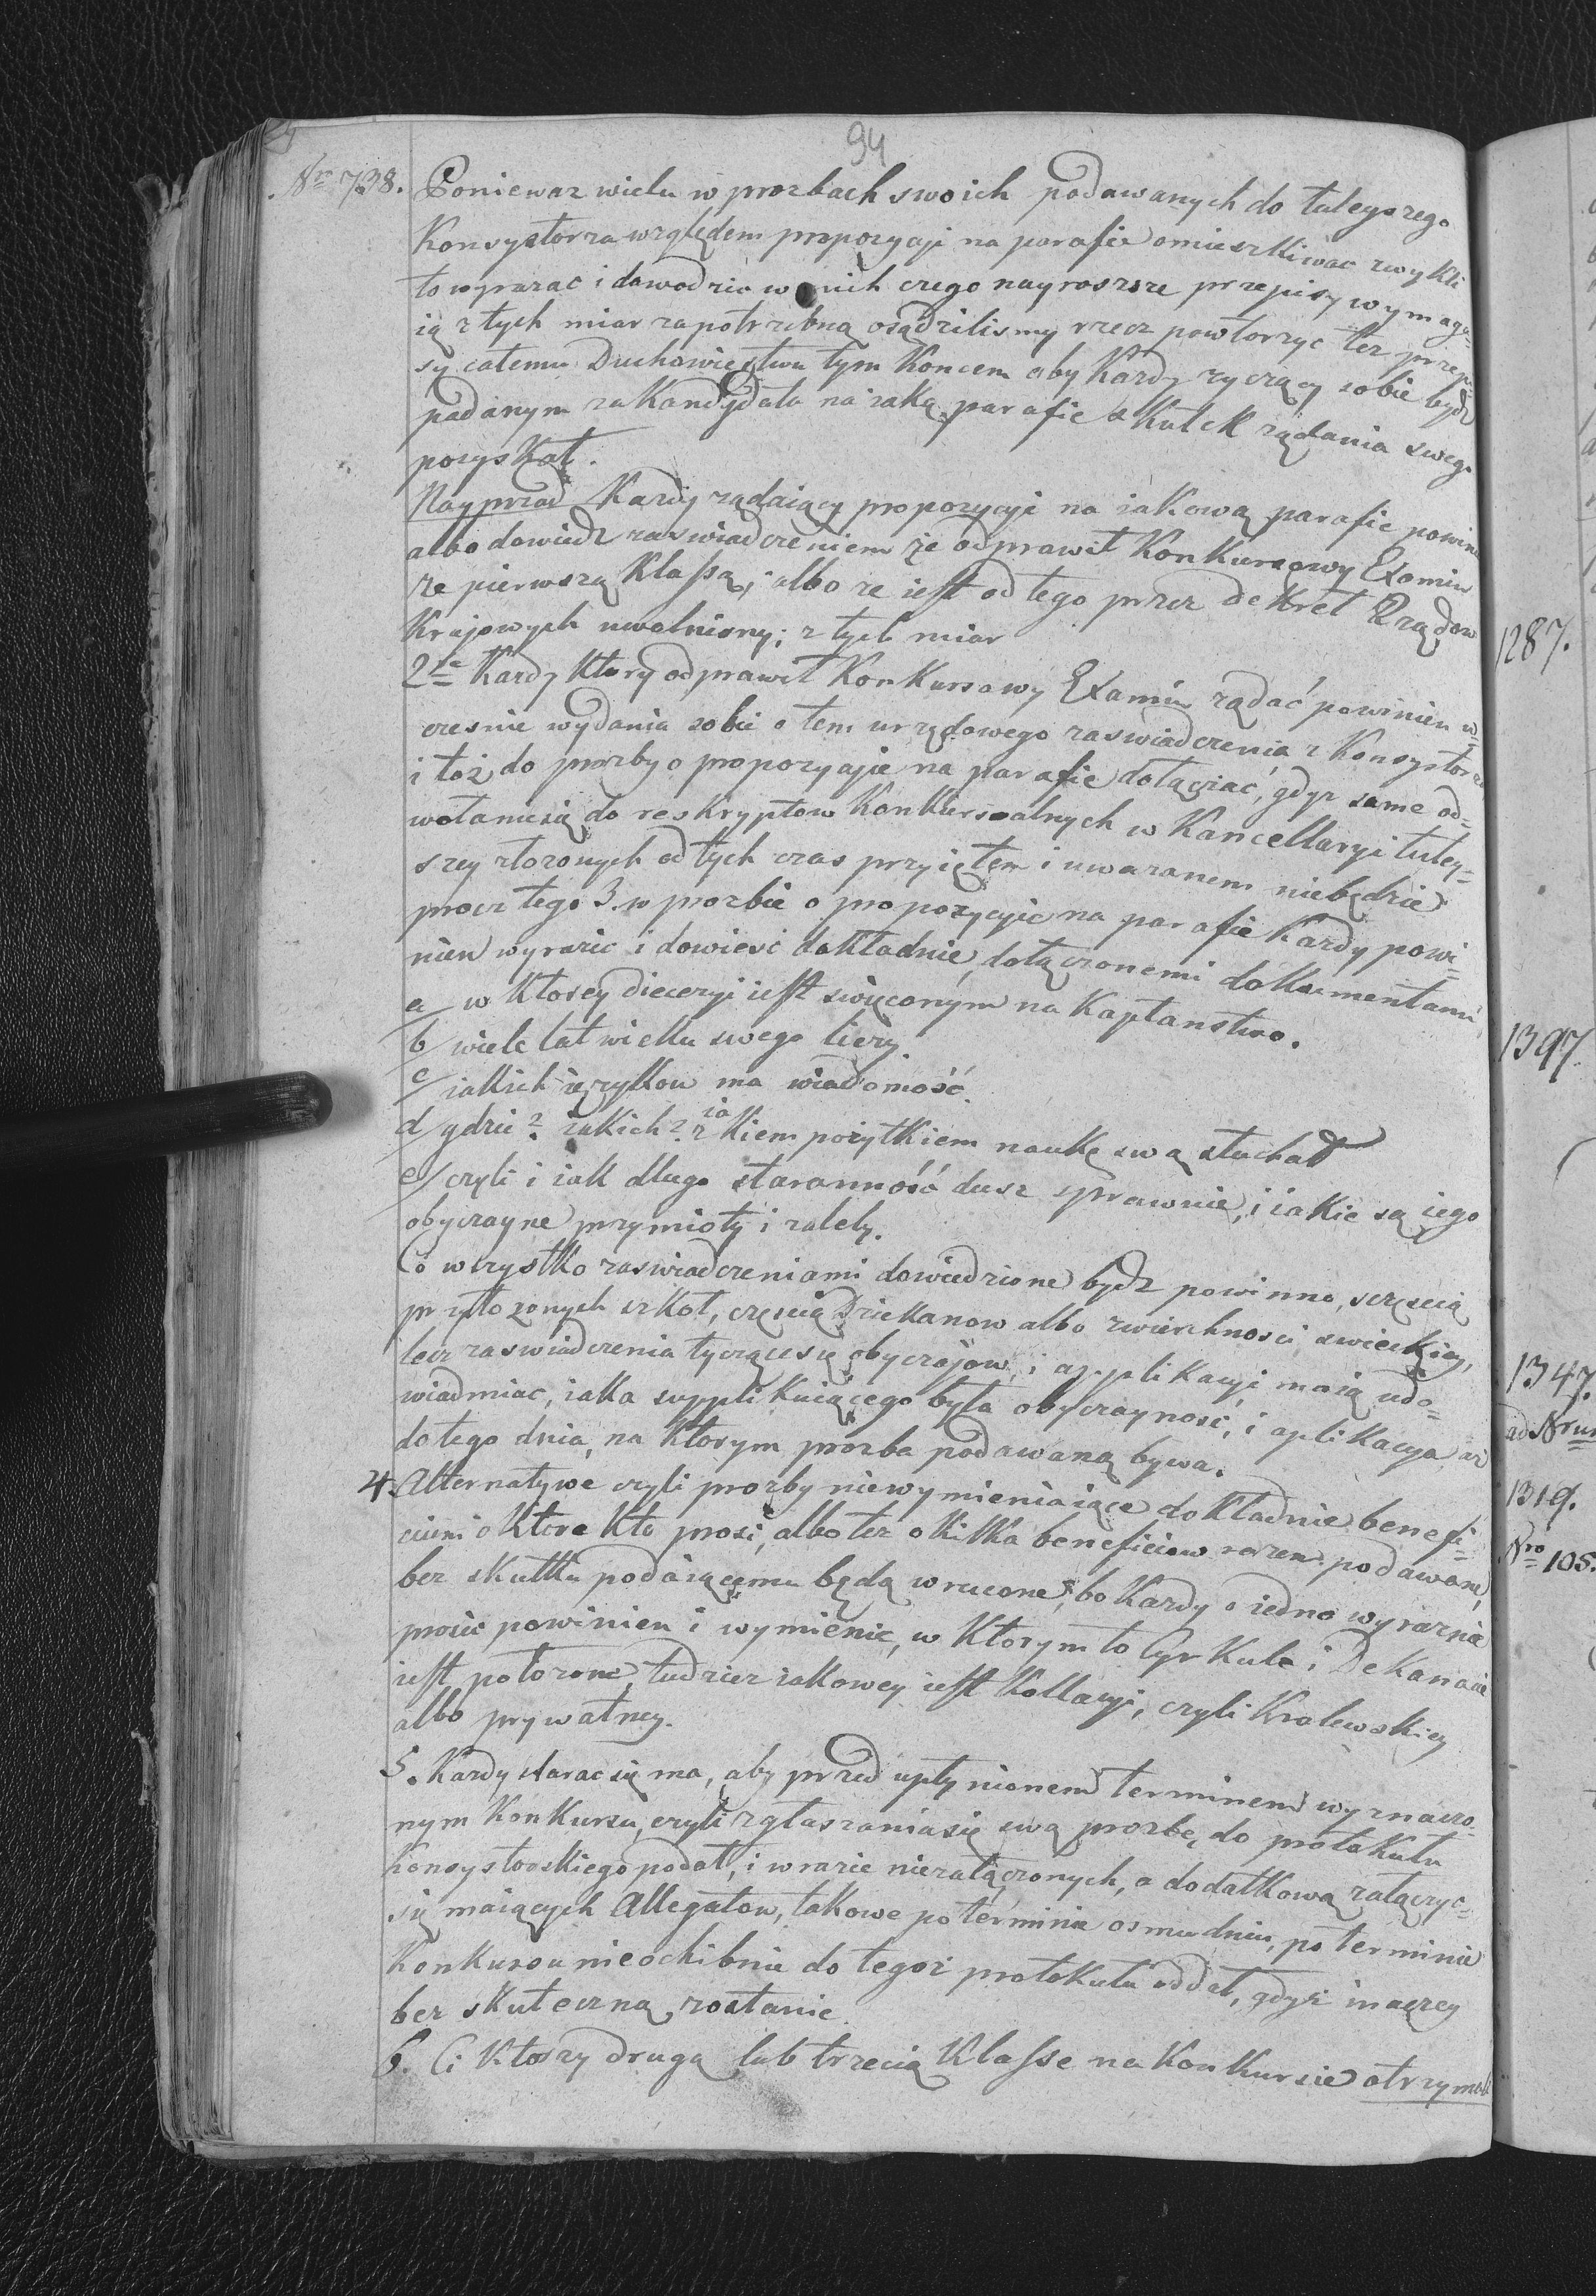 94
Nro 738. Poniewaz wielu w prozbach swoich podawanych do tuteyszego
Konsystorza względem propozycyi na parafie omieszkiwac zwykli
to wyrazac i dowodzic w nich czego nayroszsze przepisy wymaga=
ią z tych miar zapotrzebną osądzilismy rzecz powtorzyc tez przepi=
sy całemu Duchowieństwu tym Koncem aby Kazdy zyczący sobie bydz
podanym za Kandydata na iaką parafie skutek ządania swego
pozyskał.
Nayprzod Kazdy ządaiący propozycyi na iakową parafie powinien
albo dowiedz zaswiadczeniem ze odprawił Konkursowy Examin
ze pierwszą Klassą, albo ze iest od tego przez dekret Rządow
Krajowych uwolniony; z tych miar
2re Kazdy Ktory odprawił Konkursowy Examin ządać powinien w=
czesnie wydania sobie o tem urzędowego zaswiadczenia z Konsystorza
i toż do prozby o propozycyie na parafie dołączać, gdyz same od=
wołanie się do reskryptow Konkursualnych w Kancellaryi tutey=
szey złozonych od tych czas przyiętem i uwazanem niebędzie
procz tego 3. w prozbie o propozycyie na parafie Kazdy powi=
nien wyrazic i dowiesć dokładnie, dołączonemi dokumentami
a/ w Ktorey dieceyi iest święconym na Kapłanstwo.
b/ wiele lat wieku swego liczy.
c/ iakich ięzykow ma wiadomość.
d/ gdzie? iakich? z iakiem pożytkiem naukę swą słuchał
e/ czyli i iak długo staranność dusz sprawnie, i iakie są iego
obyczayne przymioty i zalety.
Co wszystko zaswiadczeniami dowiedzione bydz powinno, częscią
przyłozonych szkoł, częscią Dziekanow albo zwierchnosci swieckiey,
lecz zaswiadczenia tyczące się obyczajow i applikacyi maią udo=
wiadmiac, iaka supplikuiącego była obyczaynosc, i aplikacya az
do tego dnia, na Ktorym prozba podawaną bywa.
4. Alternatywe czyli prozby niewymieniaiące dokładnie benefi=
cium o Ktore Kto prosi, albo tez o Kilka beneficiow razem podawane,
bez skutku podaiącemu będą wrucone, bo Kazdy o iedno wyraznie
prosic powinien i wymienic, w Ktorym to Cyrkule i Dekanacie
iest połozone, tudziez iakowey iest Kollacyi, czyli Krolewskiey
albo prywatney.
5. Kazdy starac się ma, aby przed upłynionem terminem wyznaczo=
nym Konkursu, czyli zgłaszania się swą prozbę, do protokułu
Konsystorskiego podał, i w razie niezałączonych, a dodatkową załączyc=
się maiących Allegatow, takowe po terminie osmu dniu, po terminie
Konkursu nieochibnie do tegoż protokułu oddał, gdyż inaczey
bez skuteczną zostanie.
6. Ci Ktorzy drugą lub trzecią Klasse na Konkursie otrzymali
1287.
1397.
1347.
ad Nrum
1319.
Nro 105.